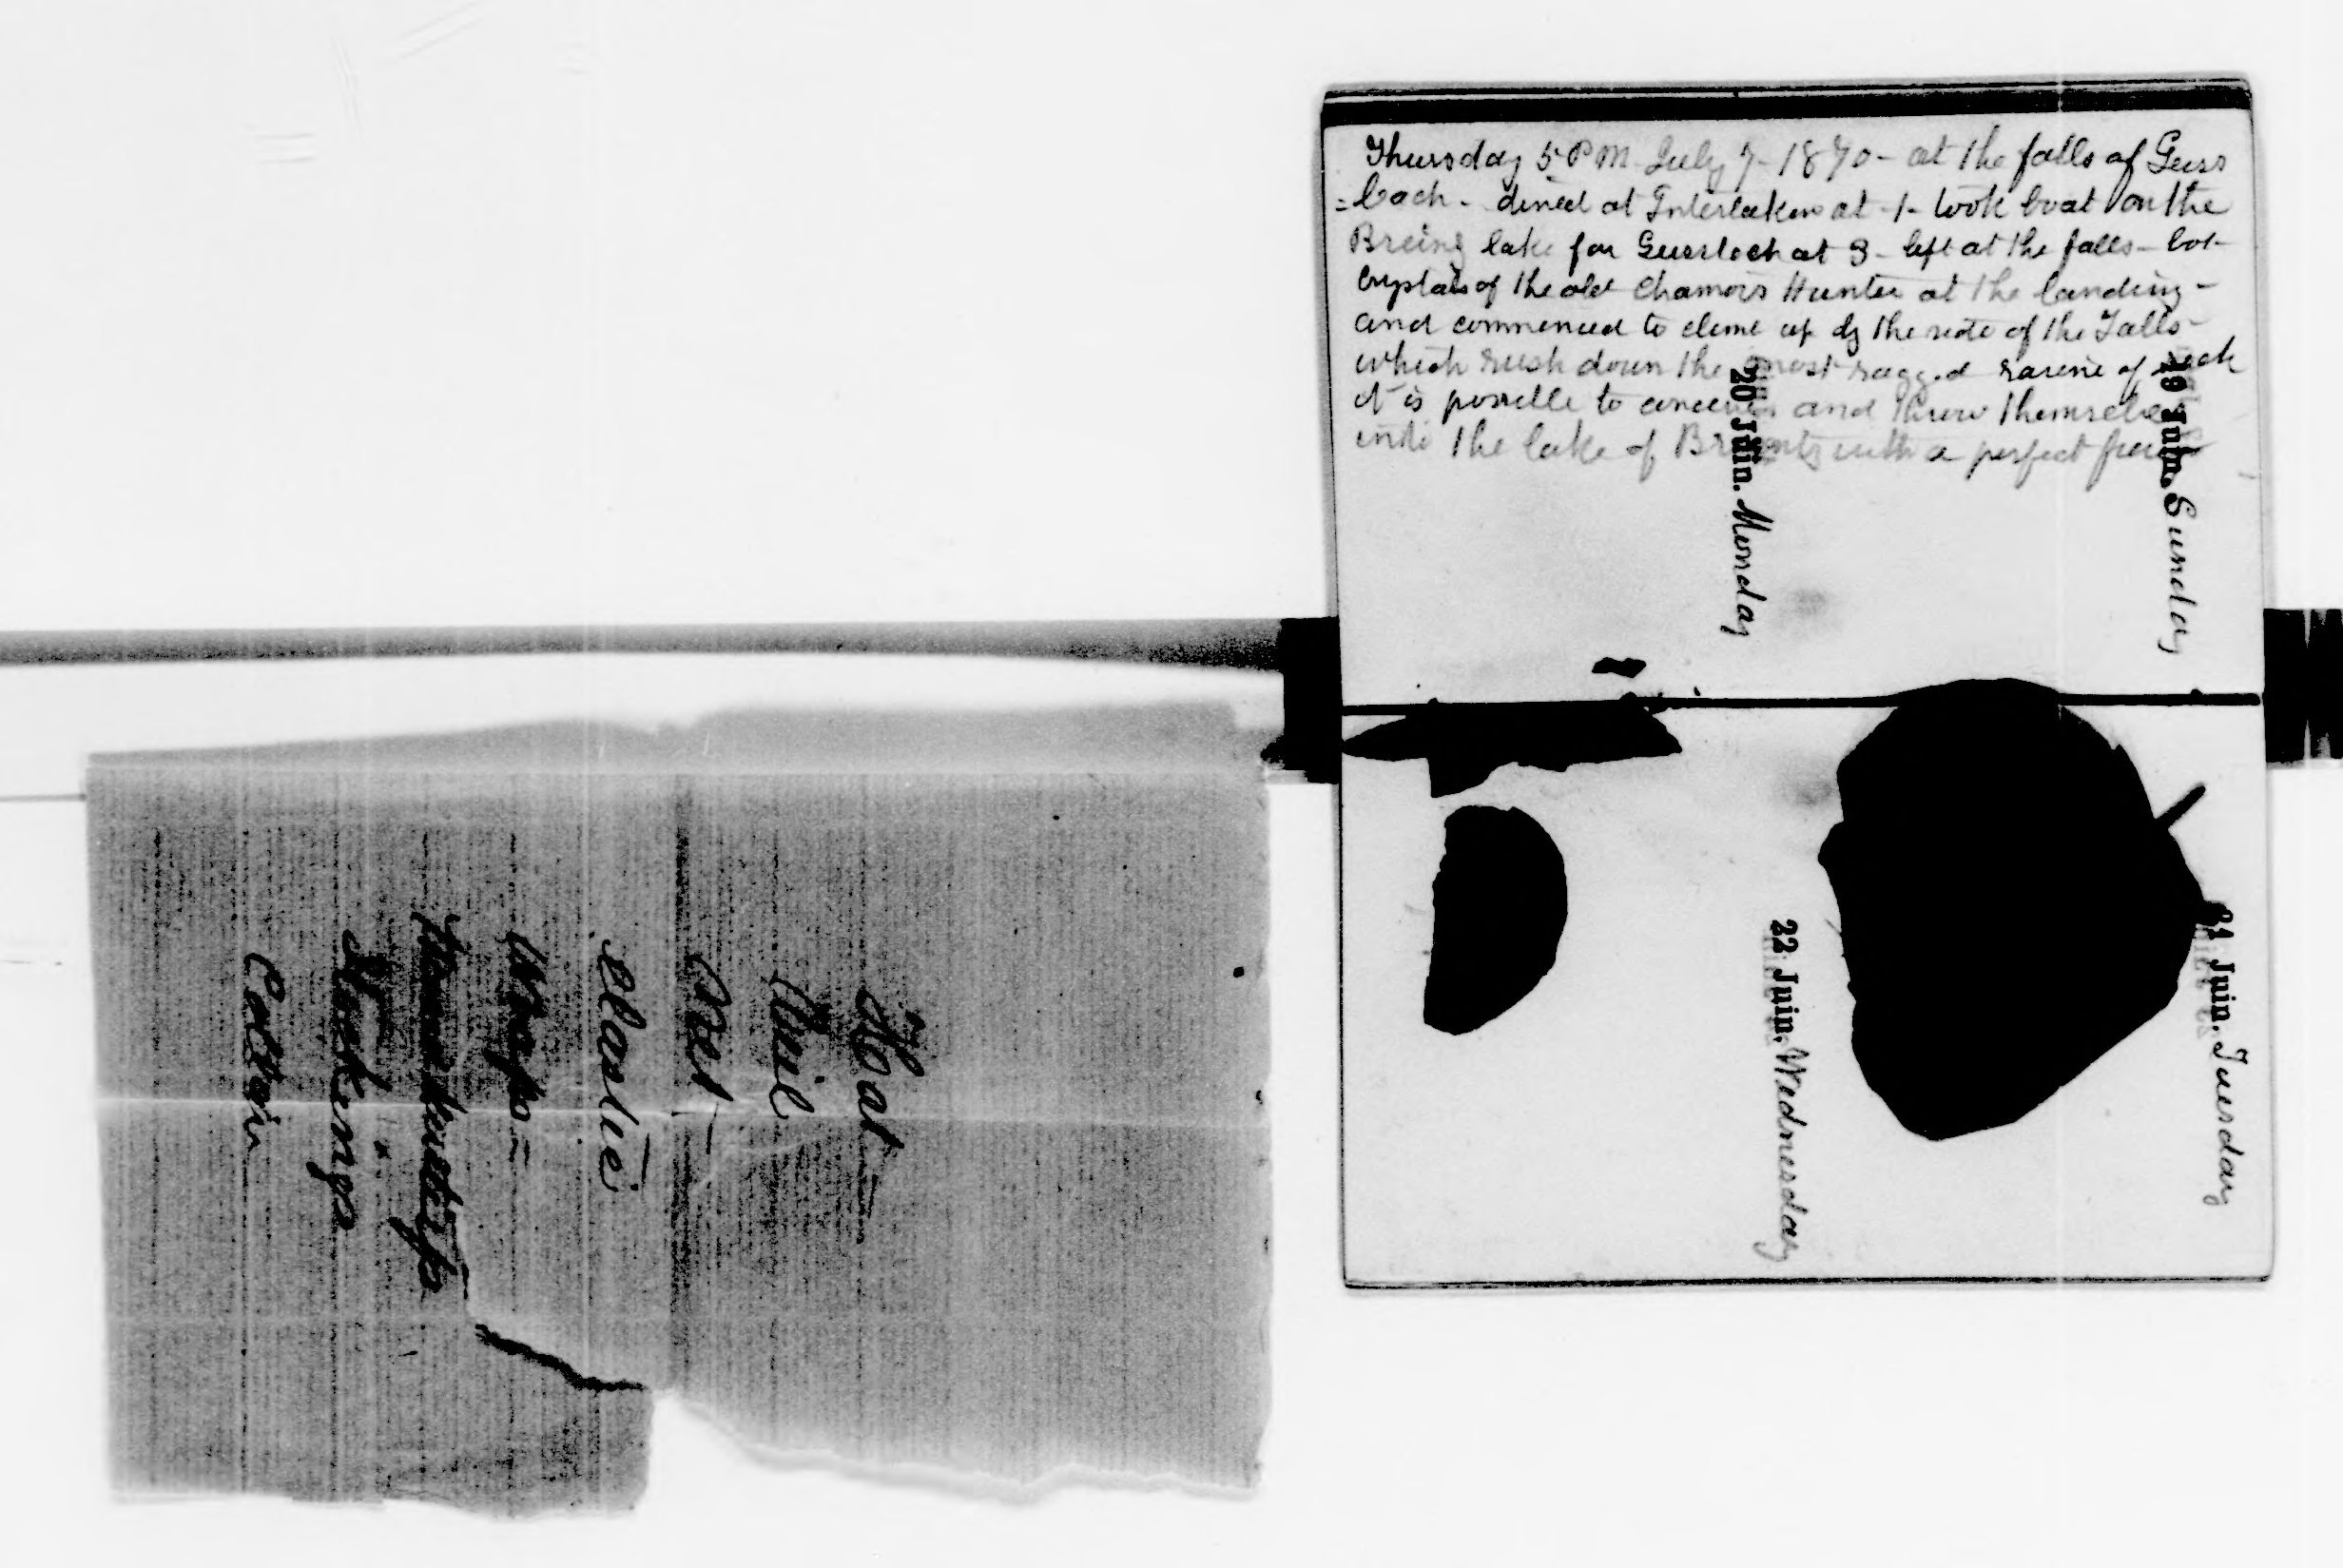 Hat
Veil
Net
elastic
Wraps
Stockings
Cotton
Thursday 5 P M July 7 - 1870 - at the falls of Geiss
= bach - dined at Interlaken at 1 - took boat on the
lake for at 3 - left at the falls - bot
crystals of the old Chamois Hunter at the landing -
and commenced to clime up by the side of the Falls -
which rush down the most rugged ravine of rock
it is possible to and throw
into the lake of with a perfect
19 Juin. Sunday
20 Juin. Monday
21 Juin. Tuesday
22 Juin. Wednesday